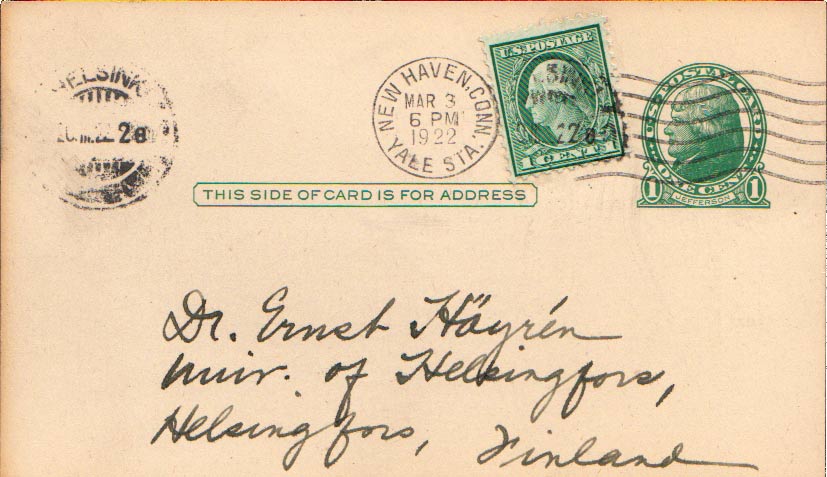 HELSINKI
20.III.22 20
NEW HAVEN, CONN.
MAR 3
6 PM
1922
YALE STA.
U.S. POSTAGE
1 CENT 1
U.S. POSTAL CARD
1 ONE CENT 1
JEFFERSON
THIS SIDE OF CARD IS FOR ADDRESS
Dr. Ernst Häyrén
Univ. of Helsingfors,
Helsingfors, Finland